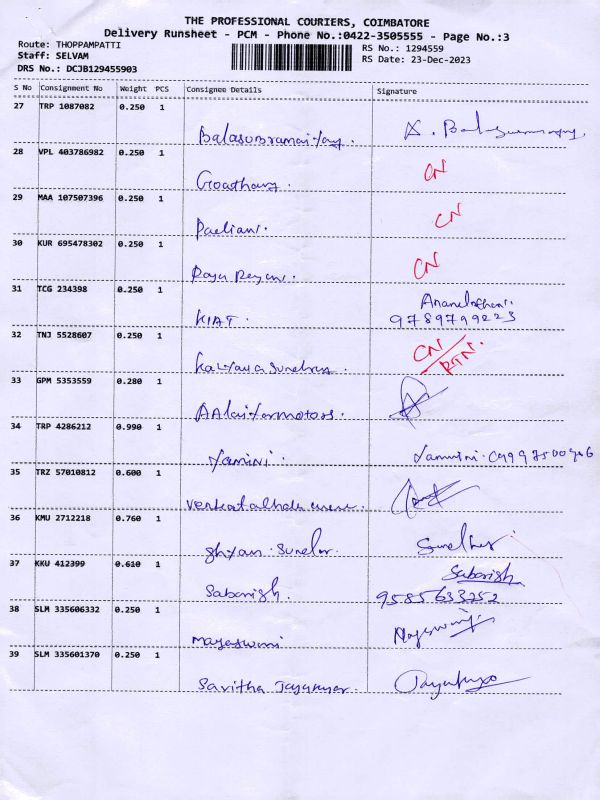 THE PROFESSIONAL COURIERS, COIMBATORE
Delivery Runsheet - PCM - Phone No.:0422-3505555 - Page No.:3
Route: THOPPAMPATTI
RS No.: 1294559
Staff: SELVAM
RS Date: 23-Dec-2023
DRS No.: DCJB129455903
S No Consignment No Weight PCS Consignee Details Signature
27 TRP 1087082 0.250 1
28 VPL 403786982 0.250 1 CN
Goathang.
29 MAA 107507396 0.250 1 CN
Paeliani.
30 KUR 695478302 0.250 1 CN
Raja Regan.
31 TCG 234398 0.250 1
KIAT. 9789799223
32 TNJ 5528607 0.250 1 CN/RTN.
33 GPM 5353559 0.280 1
34 TRP 4286212 0.990 1
Yamini.
35 TRZ 57010812 0.600 1
36 KMU 2712218 0.760 1
Shyam. Sunder.
37 KKU 412399 0.610 1 Sabarish
Sabarish. 9585633252
38 SLM 335606332 0.250 1
Mageswari
39 SLM 335601370 0.250 1
Savitha Jayakumar.